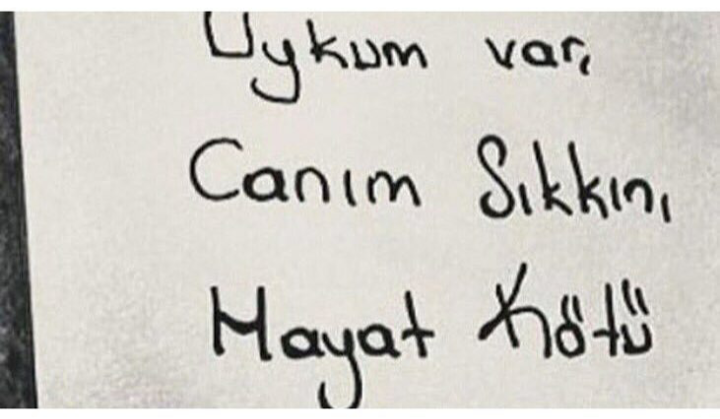 Uykum var,
Canım Sıkkın,
Hayat Kötü